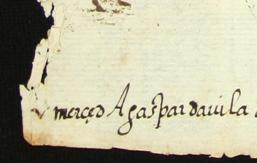 merçed A gaspar davila